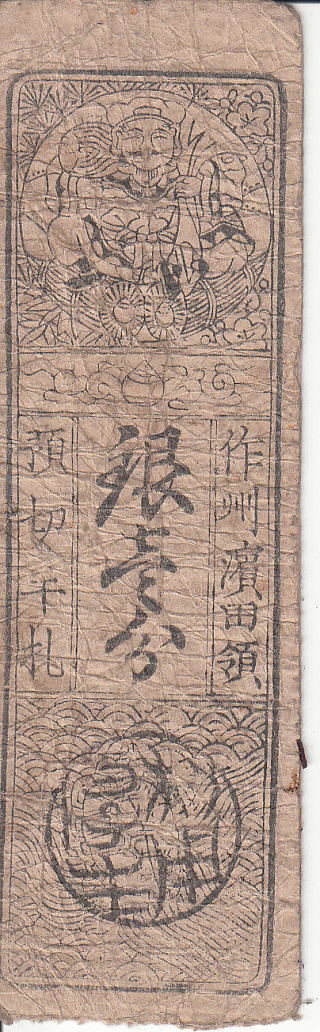 作州濱田領
銀壹分
預切手札